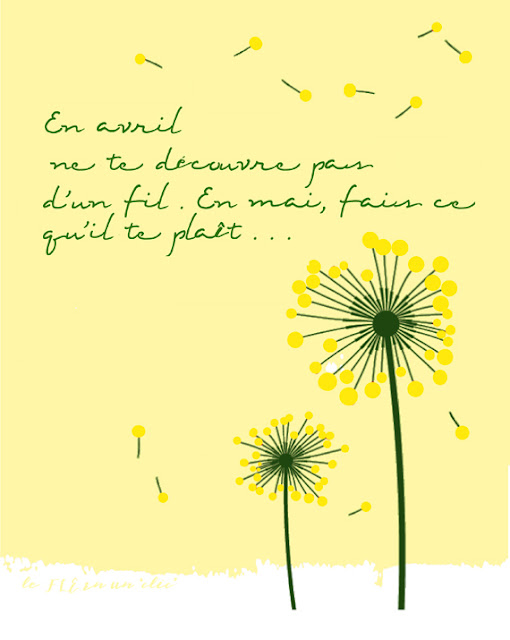 En avril
ne te découvre pas
d'un fil. En mai, fais ce
qu'il te plaît...
le FLE en un